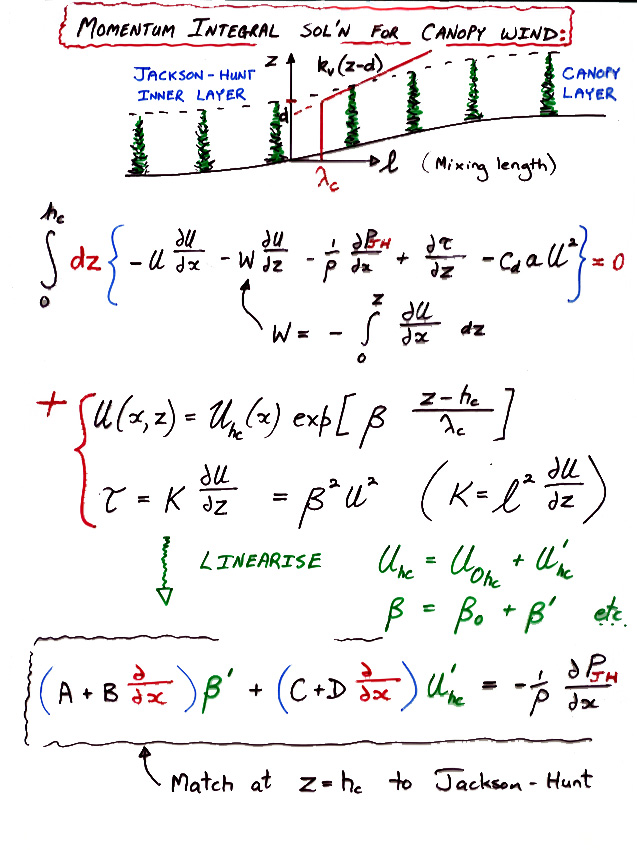 MOMENTUM INTEGRAL SOL'N FOR CANOPY WIND:
JACKSON-HUNT INNER LAYER
z
k_v(z-d)
CANOPY LAYER
d
λ_c
l (Mixing length)
∫_0^{h_c} dz { -U ∂U/∂x - W ∂U/∂z - 1/ρ ∂P_JH/∂x + ∂τ/∂z - C_d a U² } = 0
W = - ∫_0^z ∂U/∂x dz
+ { U(x,z) = U_hc(x) exp[ β (z-h_c)/λ_c ]
τ = K ∂U/∂z = β² U² ( K = l² ∂U/∂z )
LINEARISE
U_hc = U_0hc + U'_hc
β = β_0 + β' etc.
(A + B ∂/∂x) β' + (C + D ∂/∂x) U'_hc = - 1/ρ ∂P_JH/∂x
Match at z = h_c to Jackson-Hunt